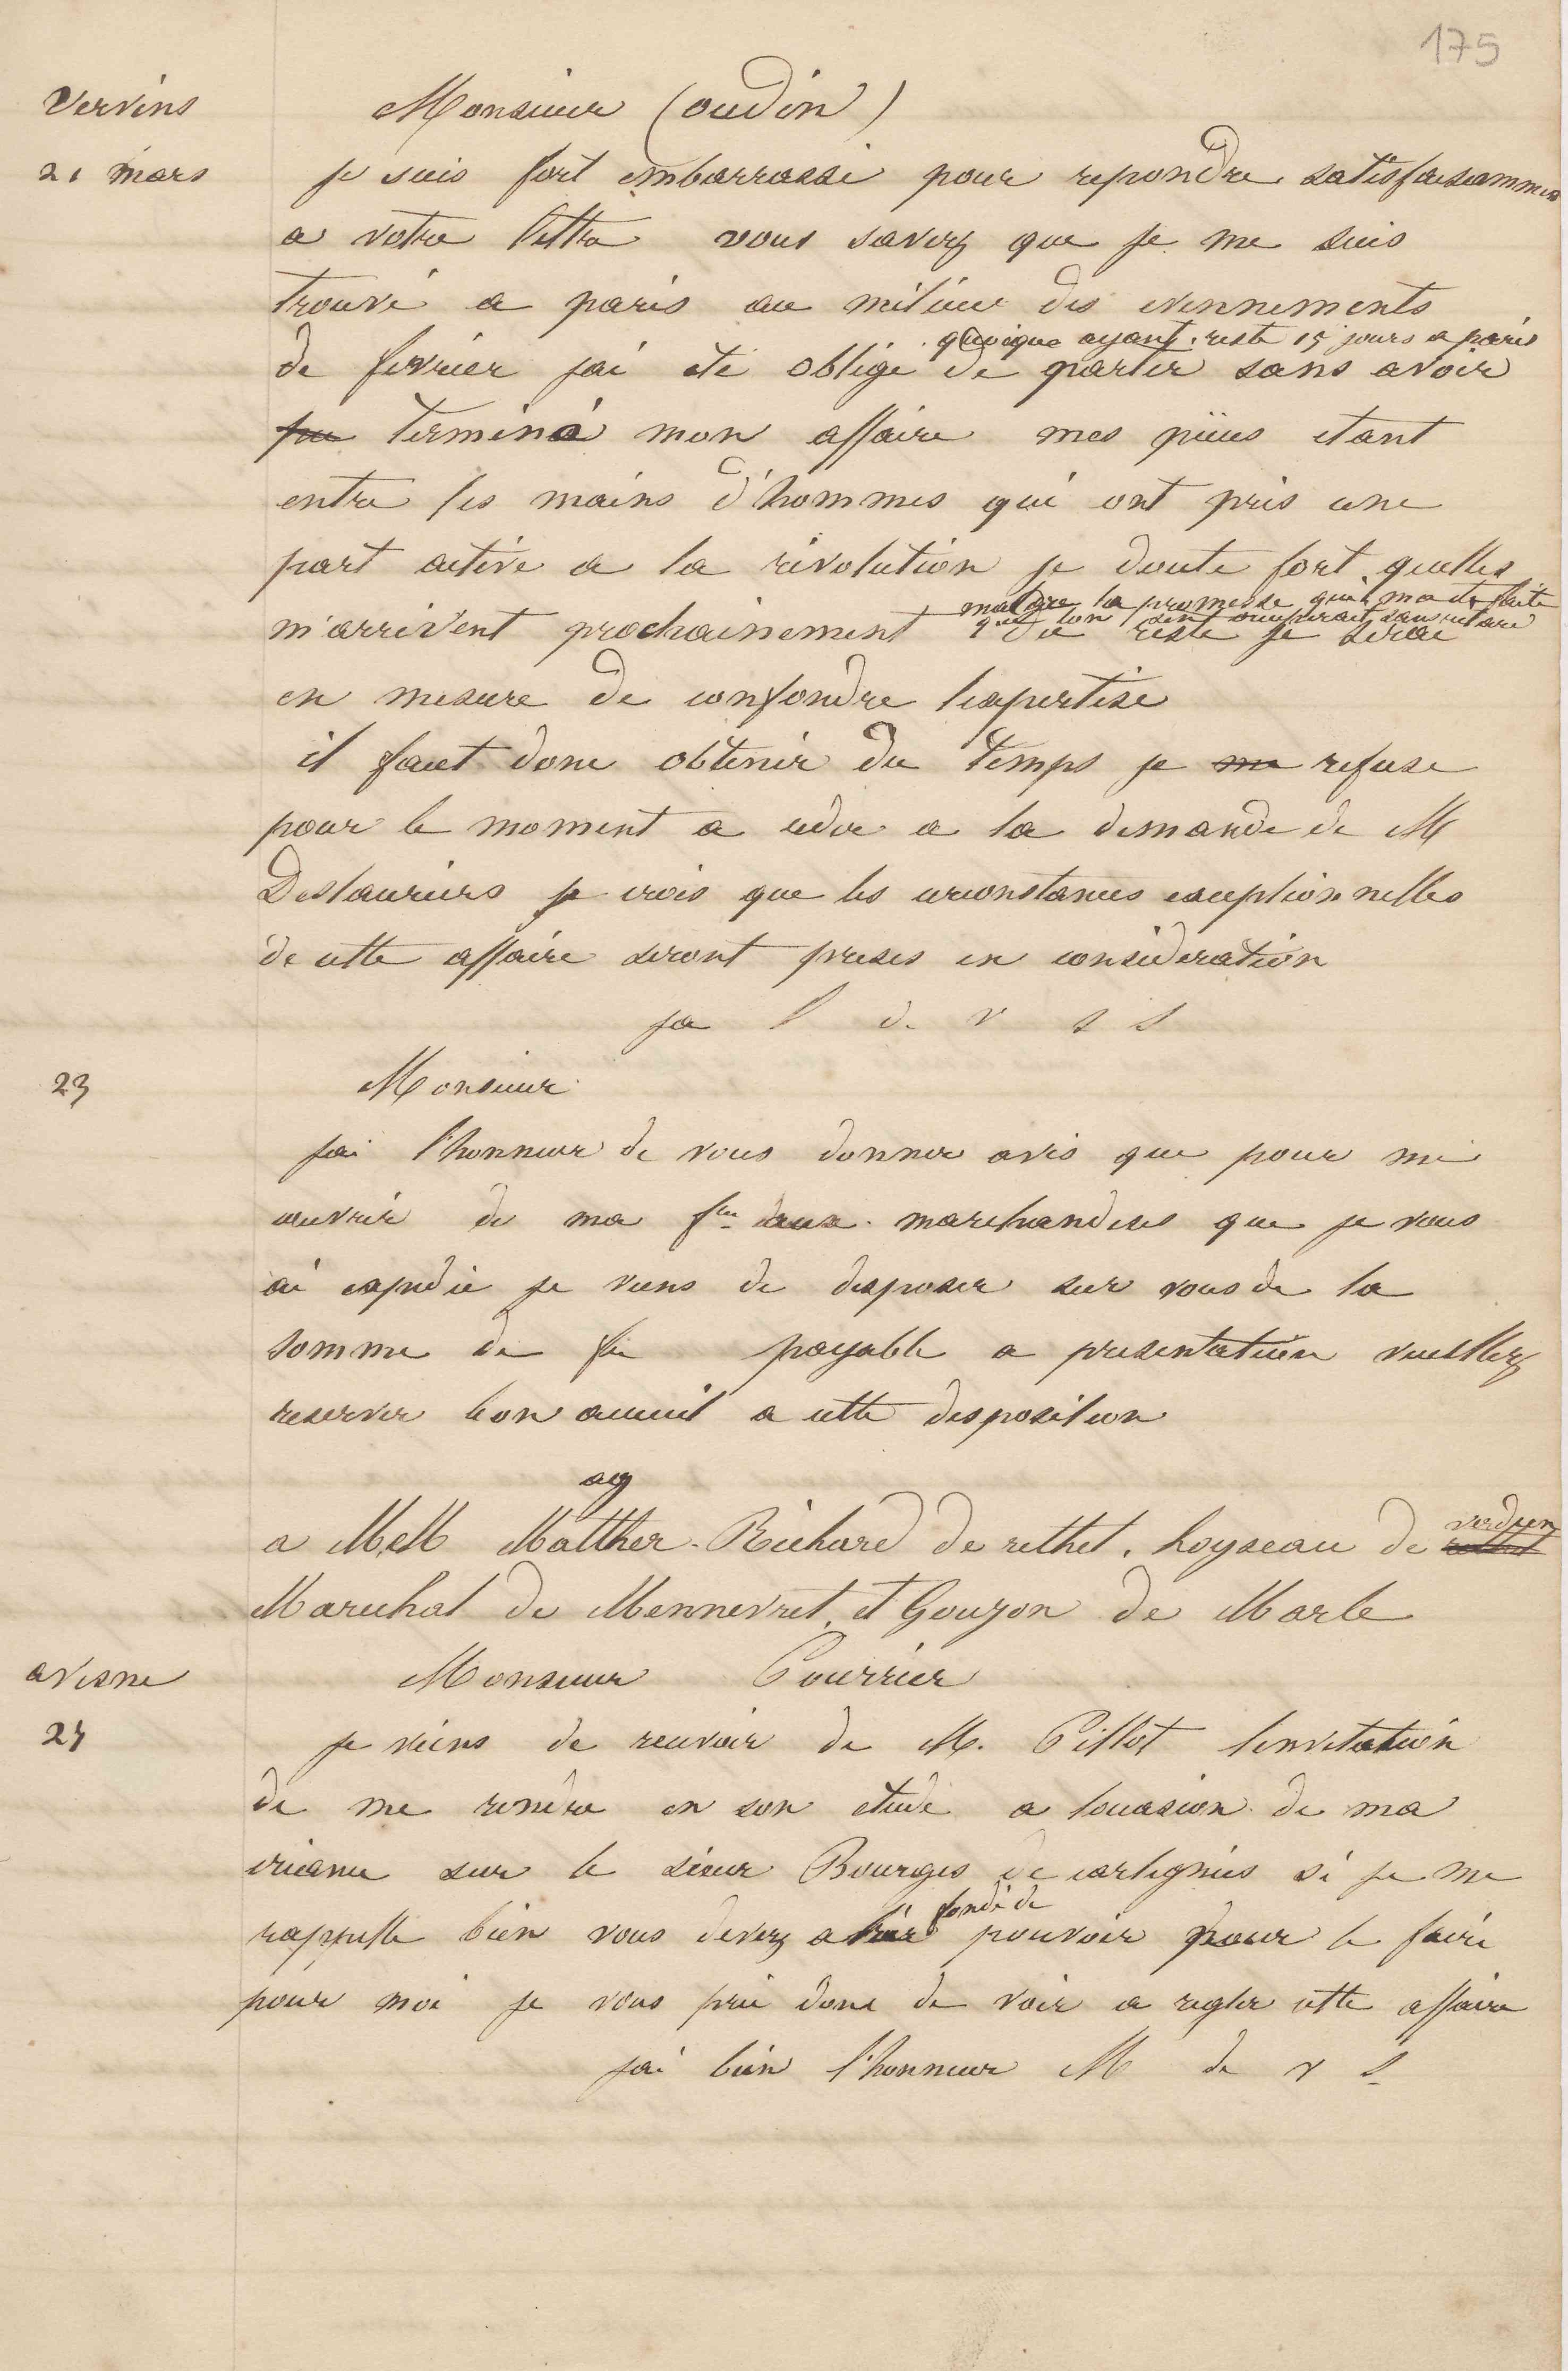 175
Vervins
Monsieur (oudin)
21 mars
je suis fort embarrassé pour repondre satisfaisamment
a votre lettre vous savez que je me suis
trouvé a paris au milieu des evennements
quoique ayant resté 15 jours a paris
de fevrier jai été obligé de partir sans avoir
pu terminé mon affaire mes pièces etant
entre les mains d'hommes qui ont pris une
part active a la révolution je doute fort quelles
malgre la promesse qui ma été faite
que lon sent occuperait sans retard
m'arrivent prochainement du reste je serai
en mesure de confondre lexpertise
il faut donc obtenir du temps je me refuse
pour le moment a ceder a la demande de M
Deslauriers je crois que les circonstances exceptionnelles
de cette affaire seront prises en consideration
ja l d. v s s
23
Monsieur
jai l'honneur de vous donner avis que pour me
couvrir de ma fre aux marchandises que je vous
ai expedié je viens de disposer sur vous de la
somme de fr payable a presentation veuillez
reserver bon accueil a cette disposition
ag
a M.M Matther. Richard de rethel. hoyseau de rethel verdun
Marechal de Mennevret. et Gouzon de Marle
avesne
Monsieur Courrier
24
je viens de recevoir de M. Pillot linvitation
de me rendre en son etude a loccasion de ma
créance sur le sieur Bourges de cartignies si je me
rappelle bien vous devez avoir fondé de pouvoir pour le faire
pour moi je vous prie donc de voir a regler cette affaire
jai bien l'honneur M de v s